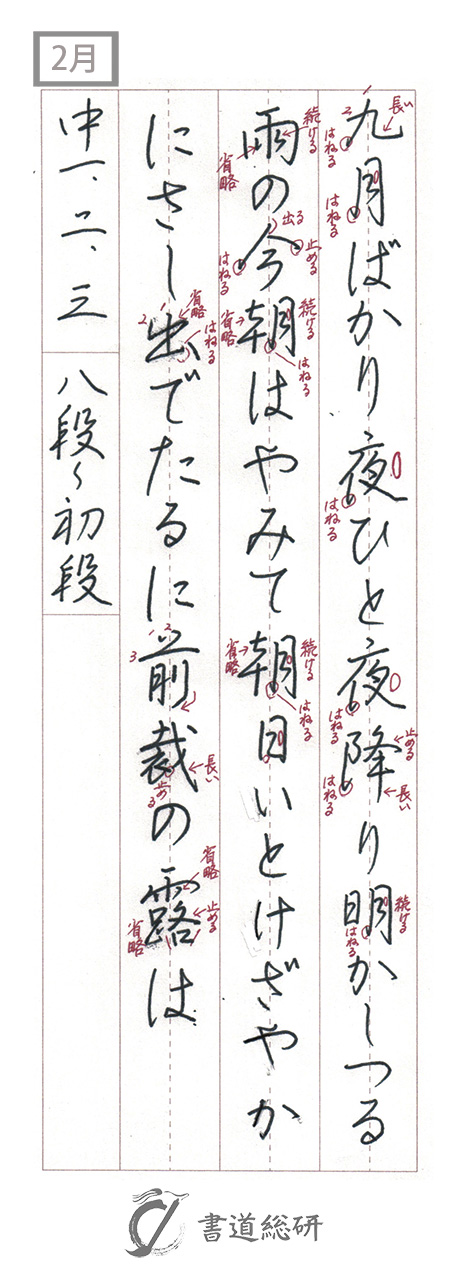 2月
九月ばかり夜ひと夜降り明かしつる
雨の今朝はやみて朝日いとけざやか
にさし出でたるに前裁の露は
中一、二、三
八段〜初段
長い
はねる
はねる
はねる
はねる
止める
長い
はねる
続ける
はねる
続ける
省略
出る
止める
はねる
続ける
省略
はねる
続ける
省略
はねる
省略
はねる
長い
止める
省略
止める
省略
1
2
1
2
1
2
3
書道総研